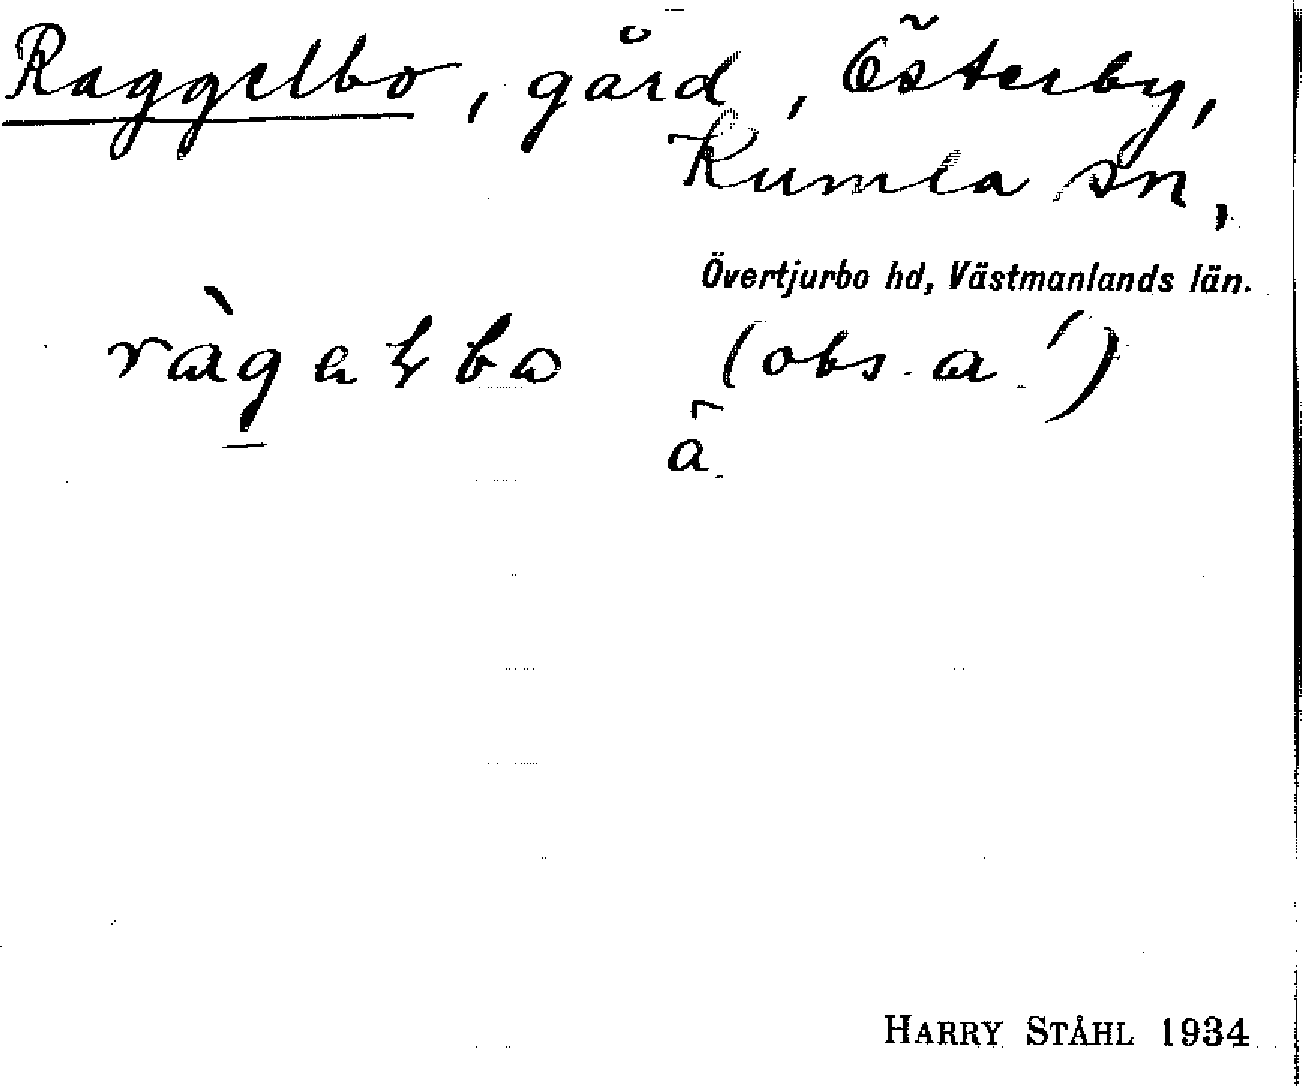 Raggelbo, gård, Österby,
Kumla sn,
Övertjurbo hd, Västmanlands län.
(obs. a ́)
HARRY STÅHL 1934